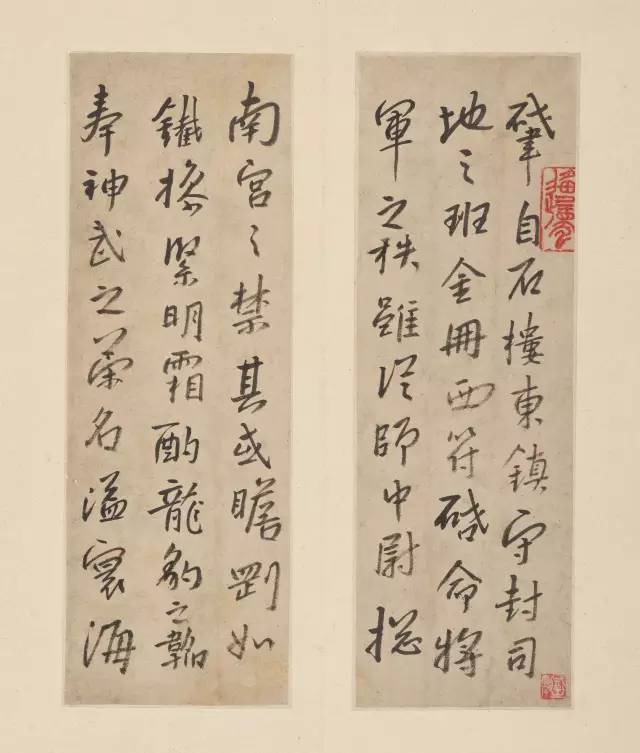 肇自石樓東鎮守封司
地之班金冊西符啓命將
軍之秩雖從師中尉揔
南宮之禁其或膽剛如
鐵操緊明霜酌龍豹之韜
奉神武之策名溢寰海